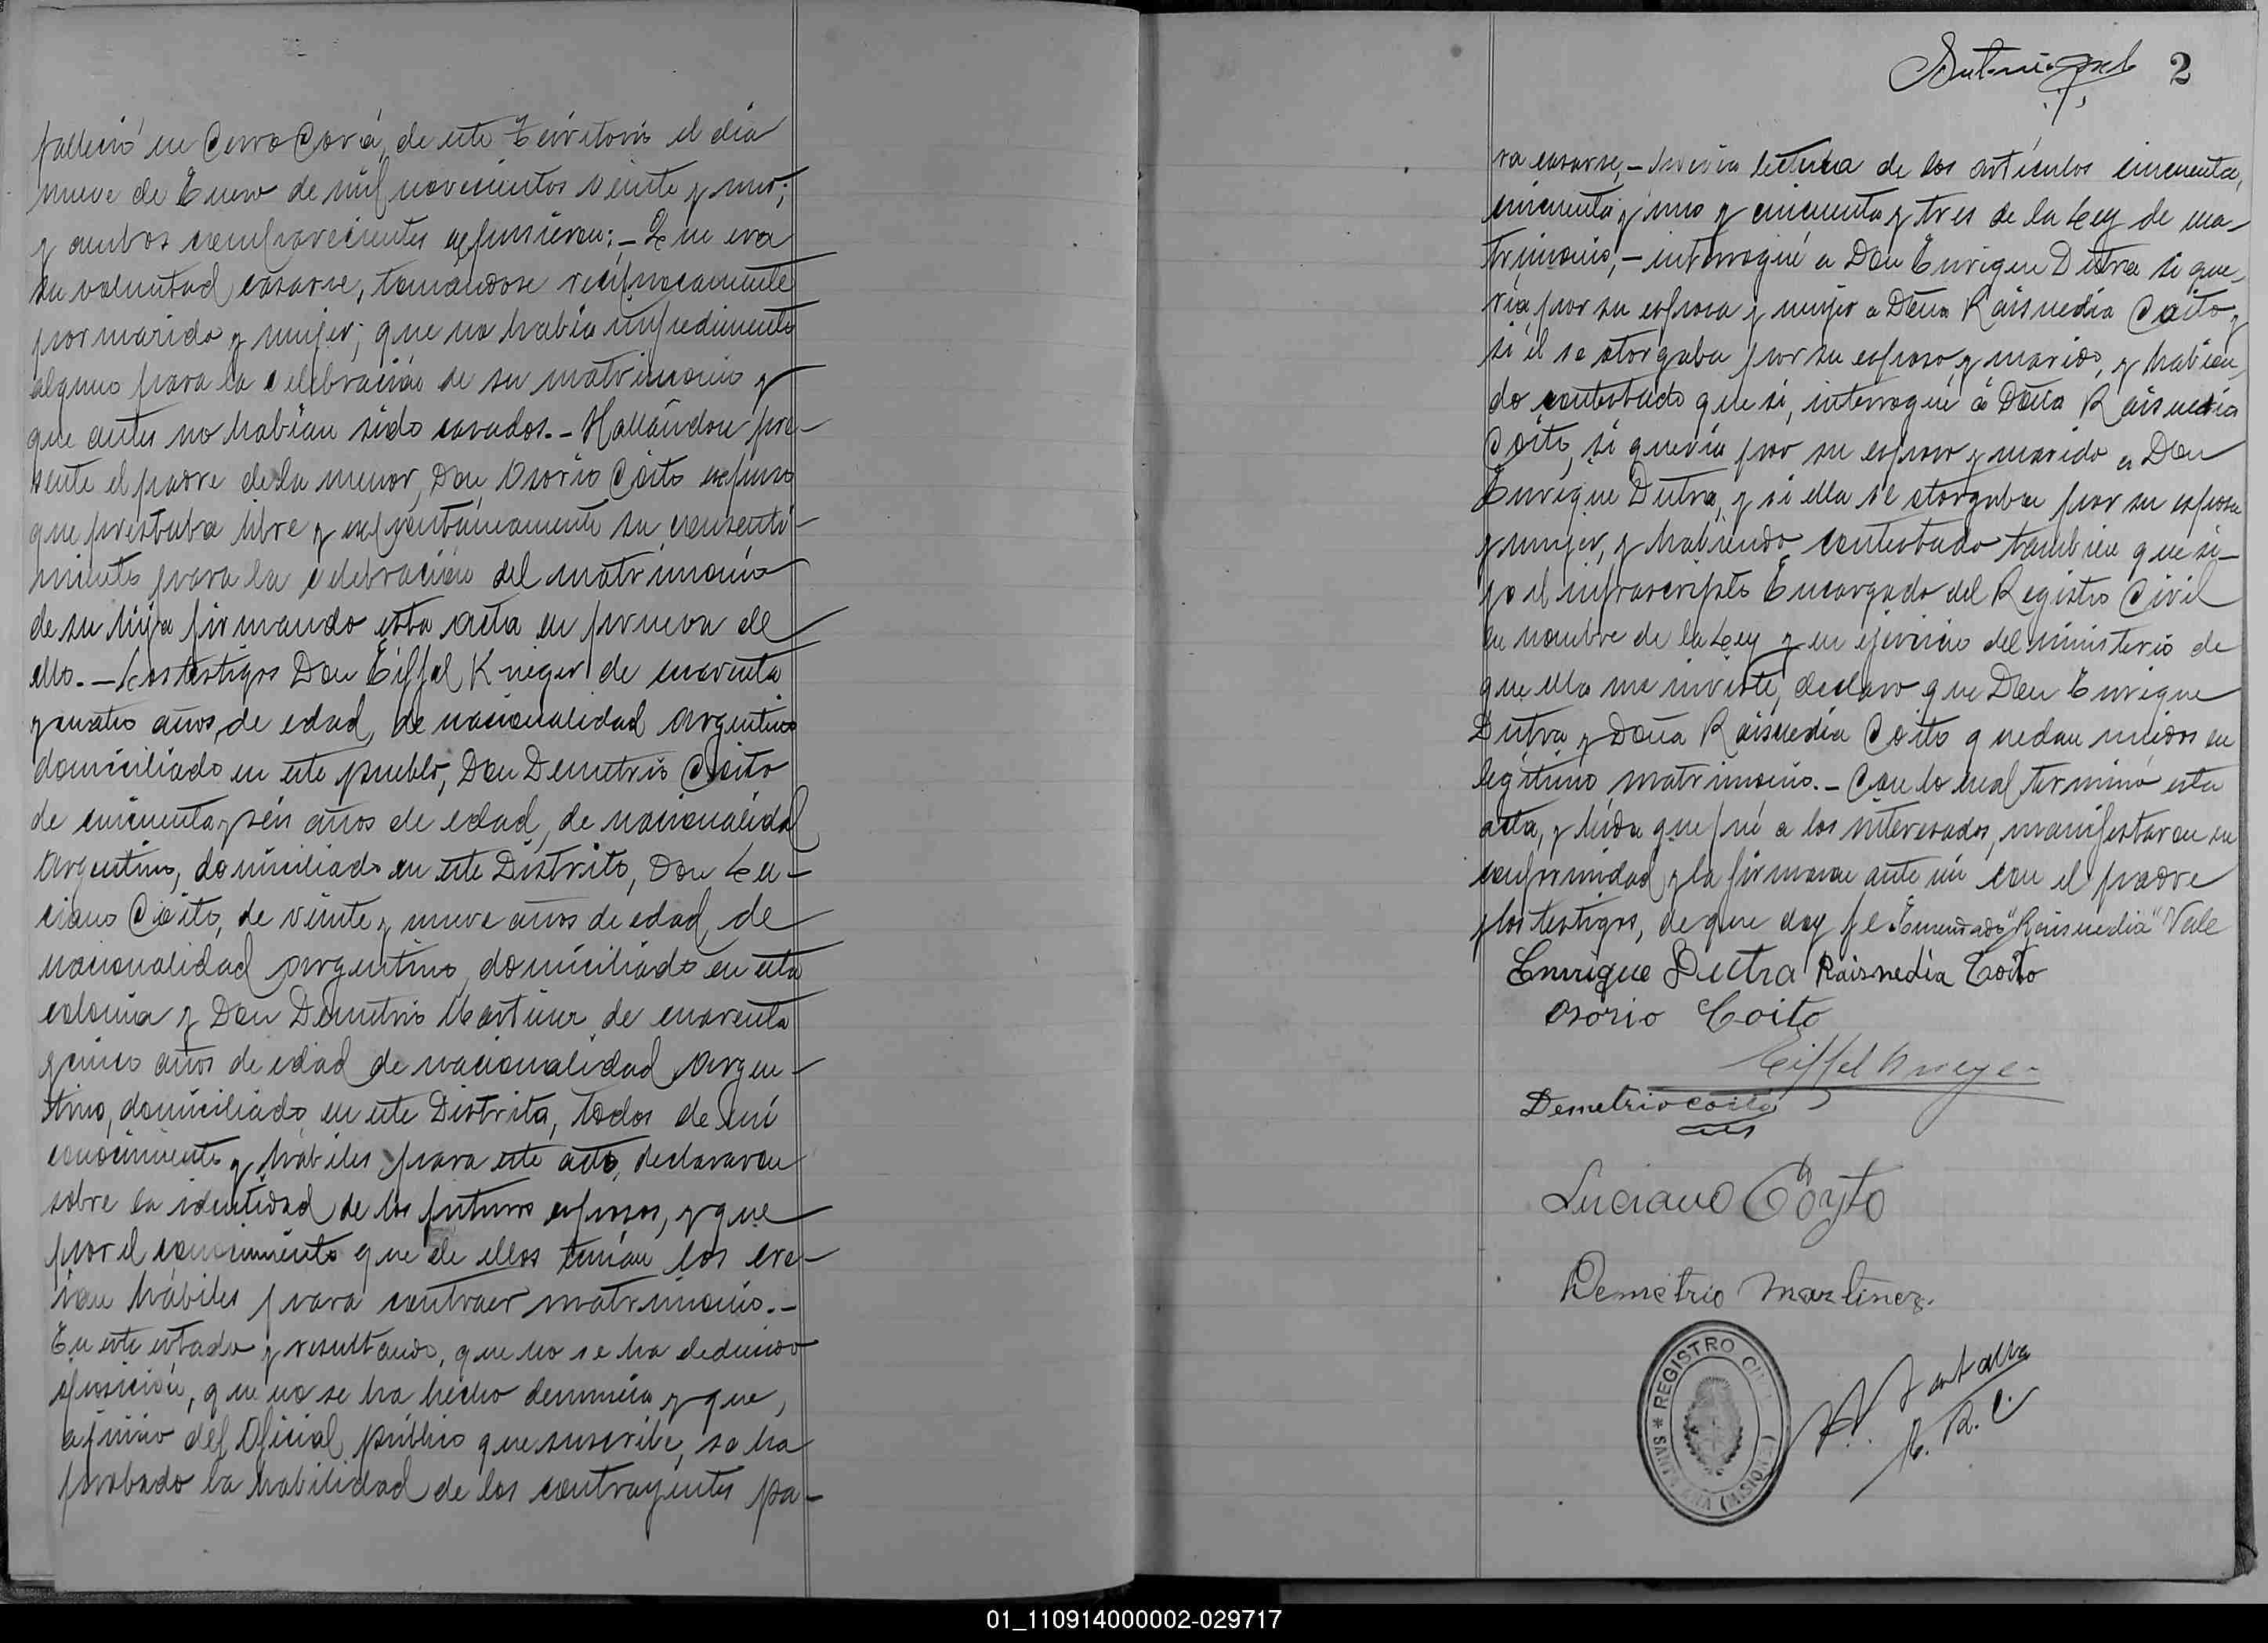 falleció en Cerro Corá, de este Territorio el día
nueve de Enero de mil novecientos veinte y uno;
y ambos comparecientes expusieron: - Que era
su voluntad casarse, tomándose recíprocamente
por marido y mujer; que no había impedimento
alguno para la celebración de su matrimonio y
que antes no habían sido casados. - Hallándose pre-
sente el padre de la menor, Don Osorio Coito expuso
que prestaba libre y espontáneamente su consenti-
miento para la celebración del matrimonio
de su hija firmando esta acta en prueba de
ello. - Los testigos Don Eiffel Krieger de cuarenta
y cuatro años, de edad, de nacionalidad Argentino
domiciliado en este pueblo, Don Demetrio Coito
de cincuenta y seis años de edad, de nacionalidad
Argentino, domiciliado en este Distrito, Don Lu-
ciano Coito, de veinte y nueve años de edad, de
nacionalidad Argentino, domiciliado en esta
colonia y Don Demetrio Martinez, de cuarenta
y cinco años de edad de nacionalidad Argen-
tino, domiciliado en este Distrito, todos de mi
conocimiento y hábiles para este acto, declararon
sobre la identidad de los futuros esposos, y que
por el conocimiento que de ellos tenían los cre-
ían hábiles para contraer matrimonio. -
En este estado y resultando, que no se ha deducido
oposición, que no se ha hecho denuncia y que,
a juicio del Oficial público que suscribe, se ha
probado la habilidad de los contrayentes pa-
2
ra casarse, - previa lectura de los artículos cincuenta,
cincuenta y uno y cincuenta y tres de la Ley de ma-
trimonio, - interrogué a Don Enrique Dutra si que-
ría por su esposa y mujer a Doña Raisnedia Coito y
si él se otorgaba por su esposo y marido, y habien-
do contestado que si, interrogué á Doña Raisnedia
Coito, si quería por su esposo y marido a Don
Enrique Dutra, y si ella se otorgaba por su esposa
y mujer, y habiendo contestado tambien que si -
yo el infrascripto Encargado del Registro Civil
en nombre de la Ley y en ejercicio del ministerio de
que ella me inviste, declaro que Don Enrique
Dutra y Doña Raisnedia Coito quedan unidos en
legítimo matrimonio. - Con lo cual terminó esta
acta, y leída que fué a los interesados, manifestaron su
conformidad y la firmaron ante mi con el padre
y los testigos, de que doy fe Enmendado "Raisnedia" Vale
Enrique Dutra Raisnedia Coito
Osorio Coito
Eiffel Krieger
Demetrio coito
Luciano Coyto
Demetrio Martinez.
* REGISTRO CIVIL * SANTA ANA (MISIONES)
E. R. C.
01_110914000002-029717